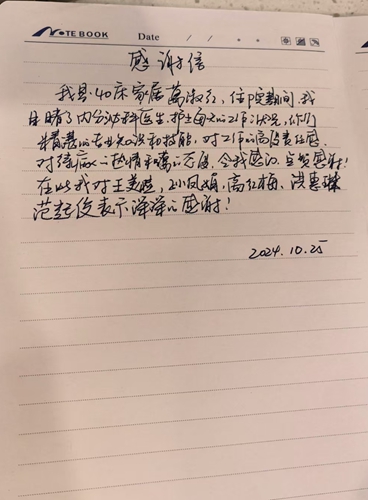 NOTE BOOK Date / /
感谢信
我是40床家属萬淑行，住院期间，我
目睹了内分泌科医生、护士每天的工作状况，你们
精湛的专业知识和技能，对工作的高度责任感，
对待病人的热情和蔼的态度，令我感动，金发感谢！
在此我对王美，孙凤娟，高红梅、洪惠
范俊表示深深的感谢！
2024.10.25